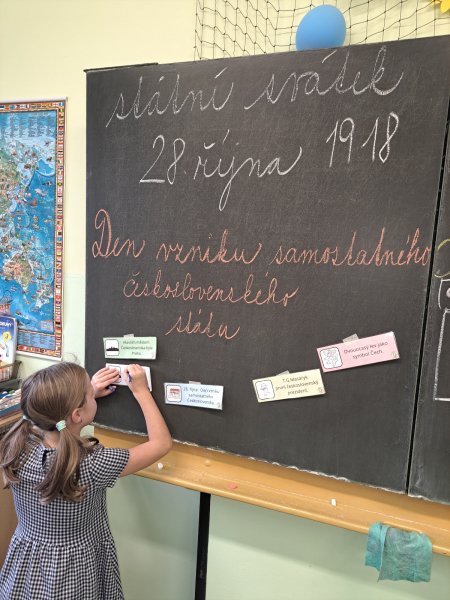 státní svátek
28. října 1918
Den vzniku samostatného
československého
státu
Hlavním městem
Československa byla
Praha.
28. říjen: Den vzniku
samostatného
Československa.
T.G.Masaryk
první československý
prezident.
Dvouocasý lev jako
symbol Čech.